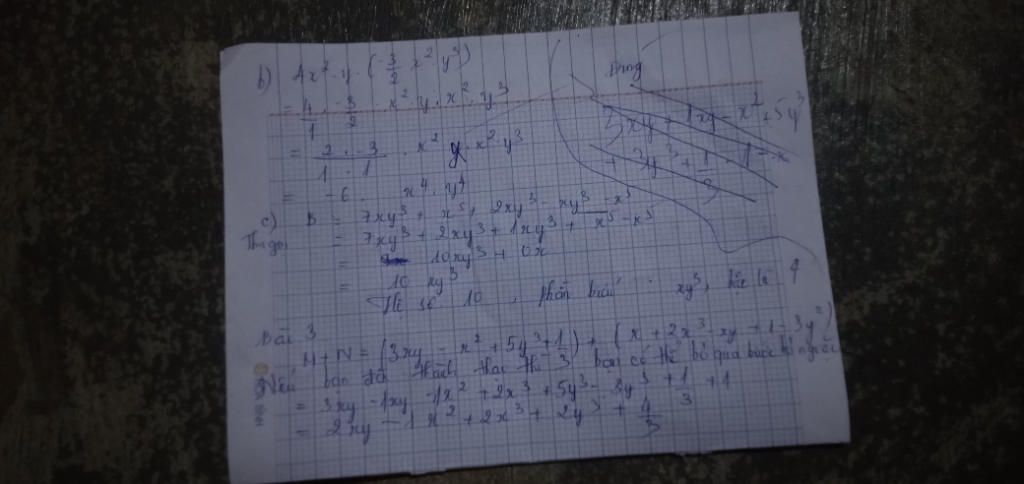 b) 4x² · y · (-3/2 x² y³)
= 4/1 · -3/2 · x² y · x² · y³
= 2 · -3 / 1 · 1 · x² y · x² · y³
= -6 · x⁴ · y⁴
c) B = 7xy³ + x⁵ + 2xy³ - xy³ - x⁵
Thu gọn = 7xy³ + 2xy³ + 1xy³ + x⁵ - x⁵
= 10xy³ + 0x
= 10 xy³
Hệ số 10, phần biến xy³, bậc là 4
Bài 3
M + N = (3xy - x² + 5y³ + 1/3) + (x + 2x³ - xy + 1 - 3y²)
Nếu bạn đã thành thạo thì bạn có thể bỏ qua bước bỏ ngoặc
= 3xy - 1xy - 1x² + 2x³ + 5y³ - 3y³ + 1/3 + 1
= 2xy - 1x² + 2x³ + 2y³ + 4/3